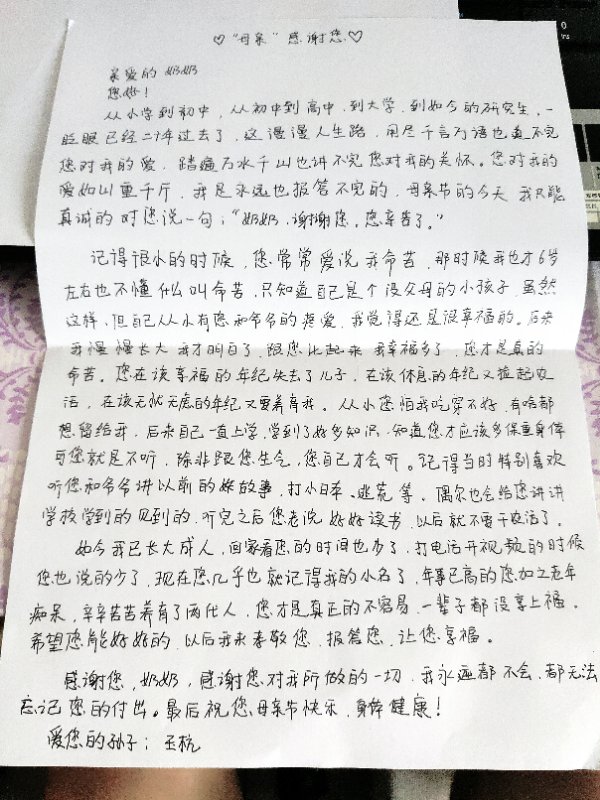 ♡"母亲"感谢您♡
亲爱的奶奶
您好！
从小学到初中，从初中到高中，到大学，到如今的研究生，一
眨眼已经二十年过去了，这漫漫人生路，用尽千言万语也道不完
您对我的爱，踏遍万水千山也讲不完您对我的关怀。您对我的
爱如山重千斤，我是永远也报答不完的，母亲节的今天我只能
真诚的对您说一句："奶奶，谢谢您，您辛苦了。"
记得很小的时候，您常常爱说我命苦，那时候我也才6岁
左右也不懂什么叫命苦，只知道自己是个没父母的小孩子，虽然
这样，但自己从小有您和爷爷的疼爱，我觉得还是很幸福的。后来
我慢慢长大我才明白了，跟您比起来我幸福多了，您才是真的
命苦。您在该享福的年纪失去了儿子，在该休息的年纪又捡起农
活，在该无忧无虑的年纪又要养育我。从小您怕我吃穿不好，有啥都
想留给我，后来自己一直上学，学到了好多知识，知道您才应该多保重身体
可您就是不听，除非跟您生气，您自己才会听。记得当时特别喜欢
听您和爷爷讲以前的故事，打小日本、逃荒等，偶尔也会给您讲讲
学校学到的见到的，听完之后您老说好好读书，以后就不要干农活了。
如今我已长大成人，回家看您的时间也少了，打电话开视频的时候
您也说的少了，现在您几乎也就记得我的小名了，年事已高的您加之老年
痴呆，辛辛苦苦养育了两代人，您才是真正的不容易，一辈子都没享上福。
希望您能好好的，以后我来孝敬您，报答您，让您享福。
感谢您，奶奶，感谢您对我所做的一切，我永远都不会、都无法
忘记您的付出。最后祝您母亲节快乐，身体健康！
爱您的孙子：王杭